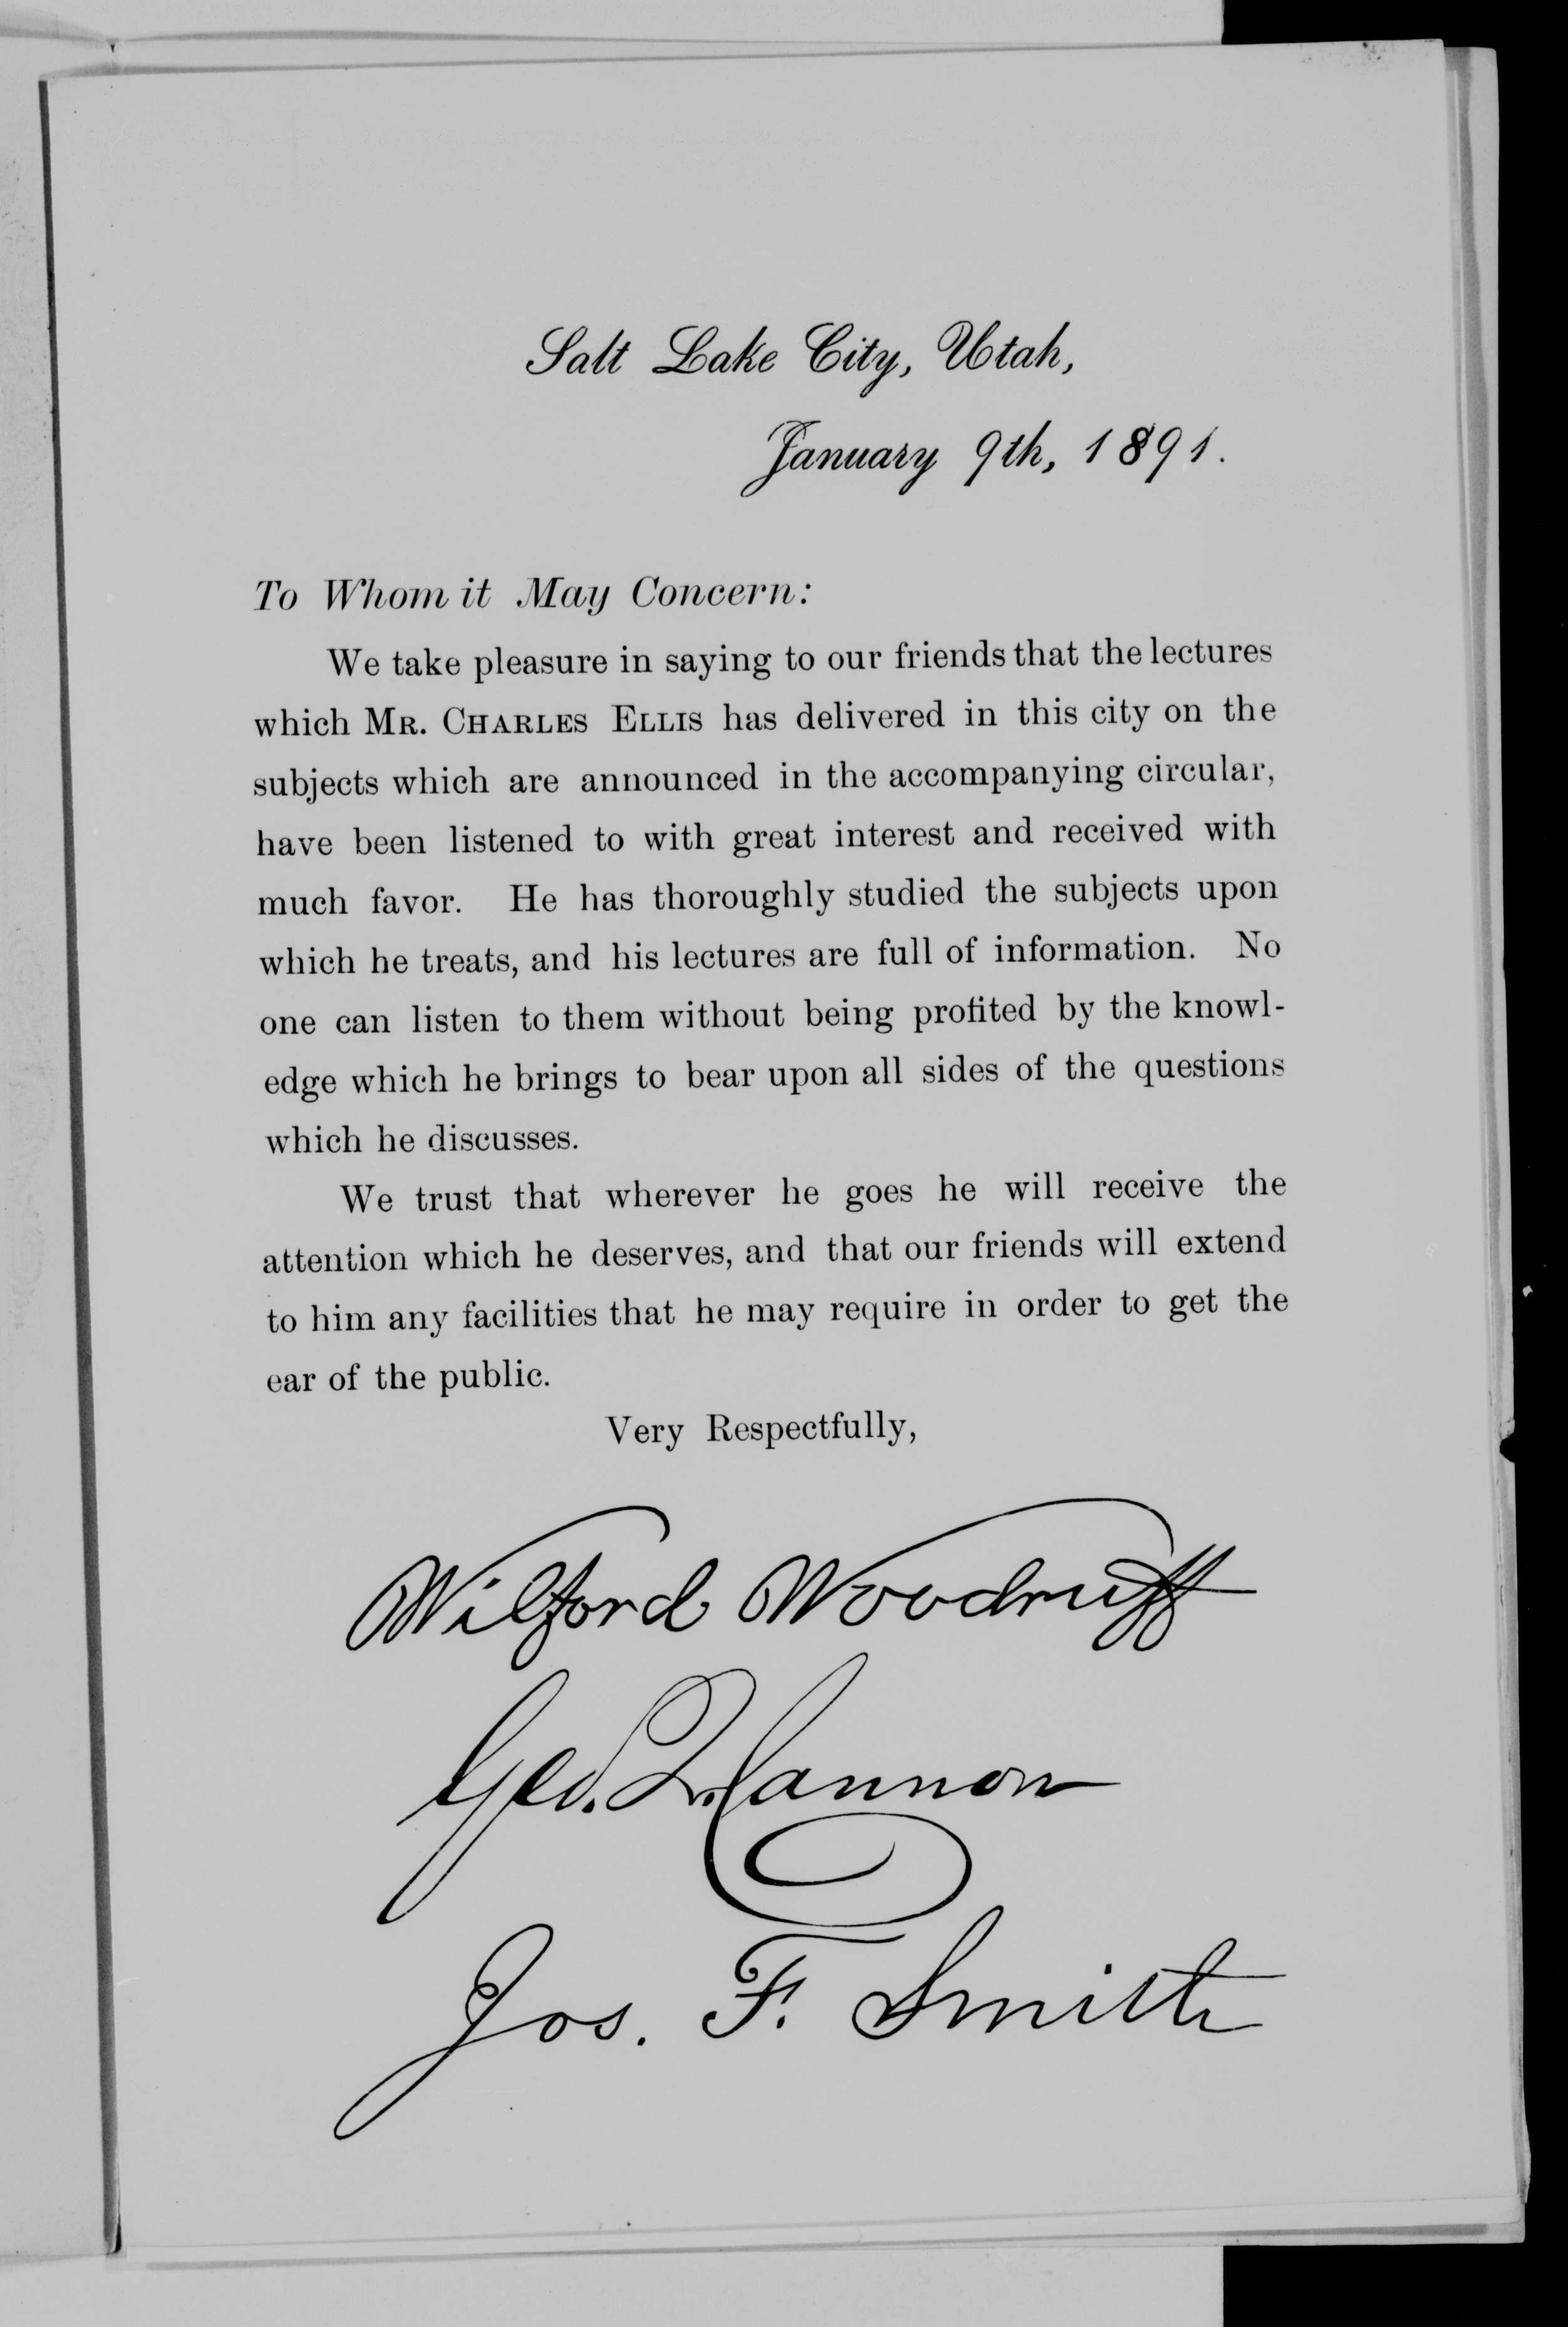 Salt Lake City, Utah,
January 9th, 1891.
To Whom it May Concern:
We take pleasure in saying to our friends that the lectures
which Mr. Charles Ellis has delivered in this city on the
subjects which are announced in the accompanying circular,
have been listened to with great interest and received with
much favor. He has thoroughly studied the subjects upon
which he treats, and his lectures are full of information. No
one can listen to them without being profited by the knowl-
edge which he brings to bear upon all sides of the questions
which he discusses.
We trust that wherever he goes he will receive the
attention which he deserves, and that our friends will extend
to him any facilities that he may require in order to get the
ear of the public.
Very Respectfully,
Wilford Woodruff
Geo. Q. Cannon
Jos. F. Smith